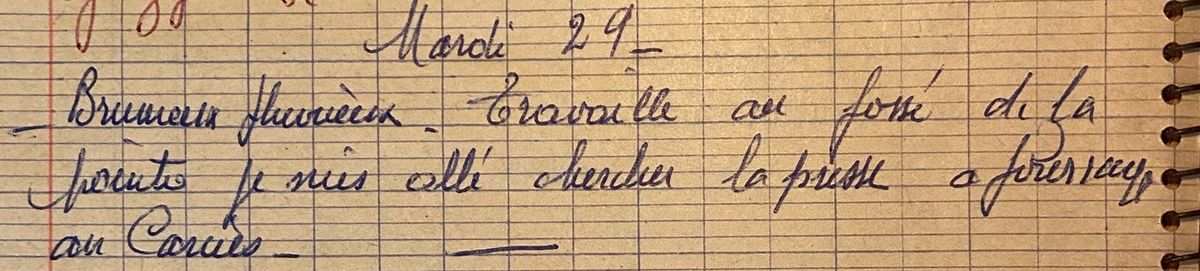 Mardi 29_
_ Brumeux pluvieux. travaille au fossé de la
pointe je suis allé chercher la presse a
au